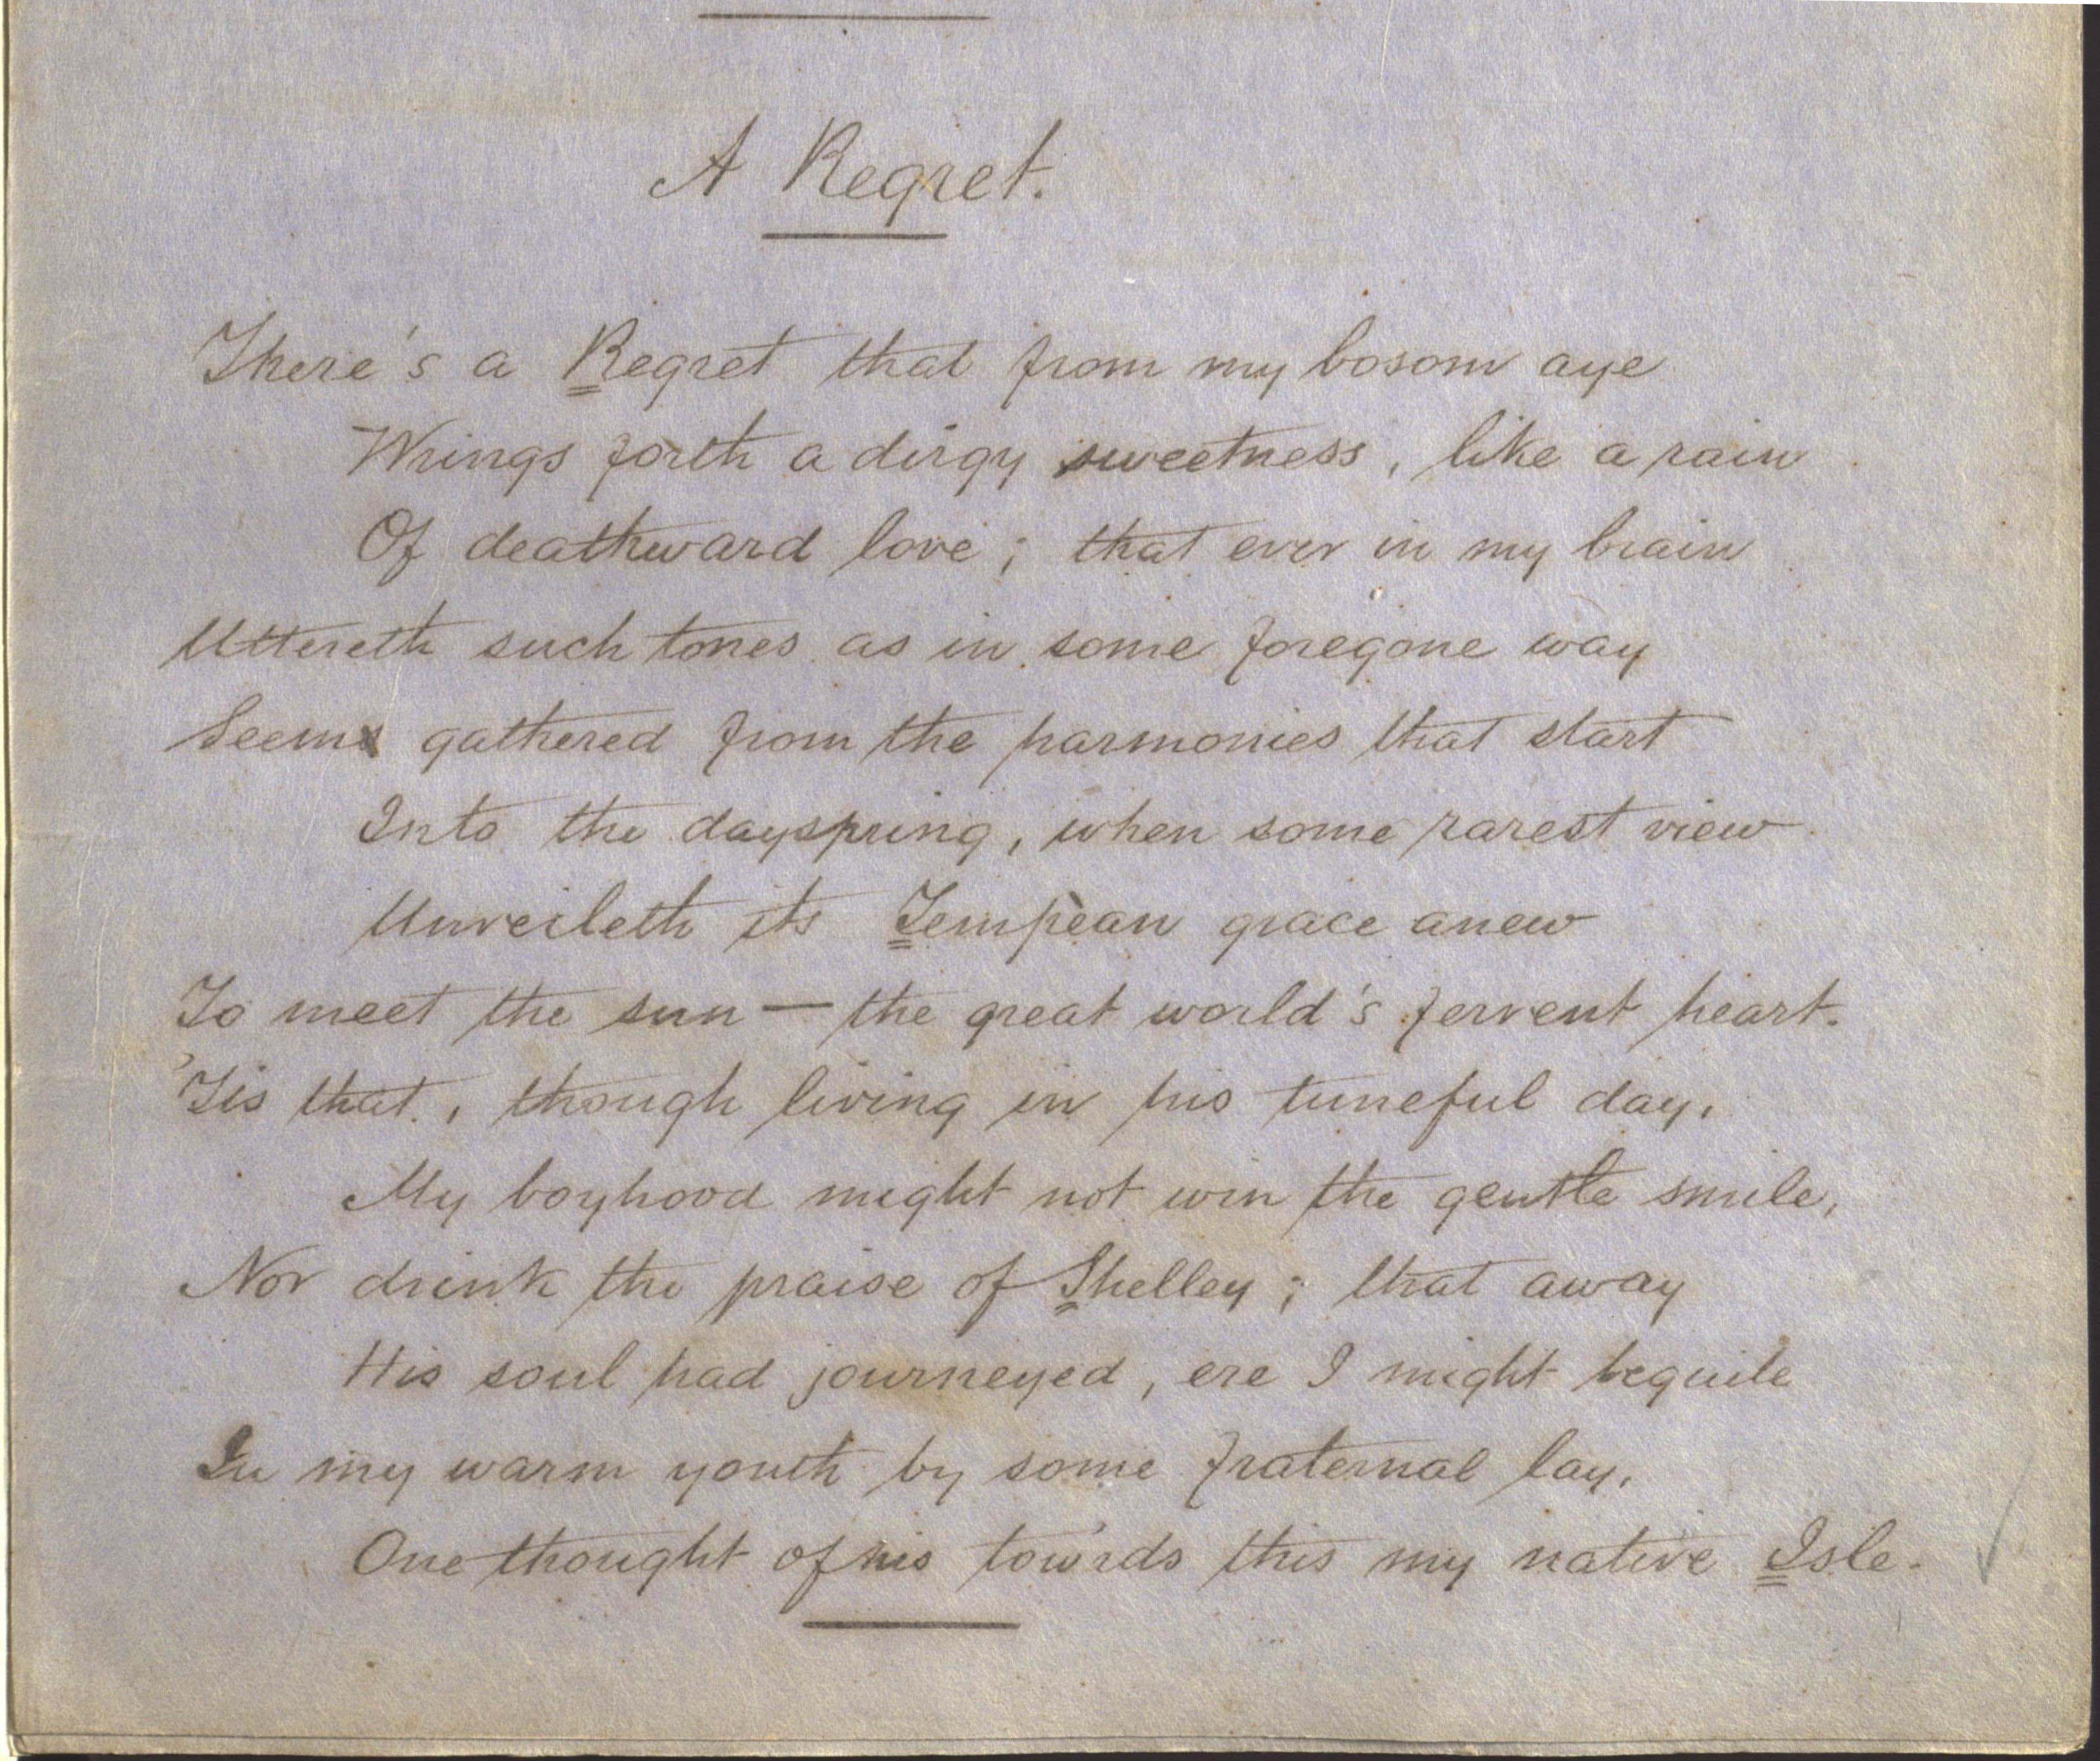 A Regret.
There's a Regret that from my bosom aye
Wrings forth a dirgy sweetness, like a rain
Of deathward love; that ever in my brain
Uttereth such tones as in some foregone way
Seem gathered from the harmonies that start
Into the dayspring, when some rarest view
Unveileth its Tempèan grace anew
To meet the sun — the great world's fervent heart.
'Tis that, though living in his tuneful day,
My boyhood might not win the gentle smile,
Nor drink the praise of Shelley; that away
His soul had journeyed, ere I might beguile
In my warm youth by some fraternal lay,
One thought of his towards this my native Isle.